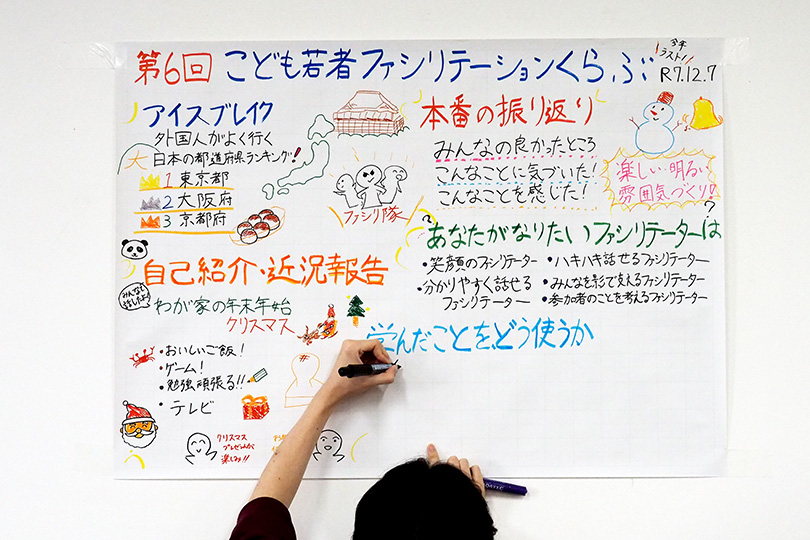 第6回 こども若者ファシリテーションくらぶ
今年
ラスト!
R7.12.7
アイスブレイク
外国人がよく行く
日本の都道府県ランキング!
1 東京都
2 大阪府
3 京都府
ファシリ隊
本番の振り返り
みんなの良かったところ
こんなことに気づいた!
こんなことを感じた!
楽しい・明るい
雰囲気づくり!
あなたがなりたいファシリテーターは?
・笑顔のファシリテーター
・分かりやすく話せる
ファシリテーター
・ハキハキ話せるファシリテーター
・みんなを影で支えるファシリテーター
・参加者のことを考えるファシリテーター
自己紹介・近況報告
みんなで
話したよ!
わが家の年末年始
クリスマス
・おいしいご飯!
・ゲーム!
・勉強頑張る!!
・テレビ
クリスマス
プレゼントが
楽しみ!!
学んだことを、どう使うか